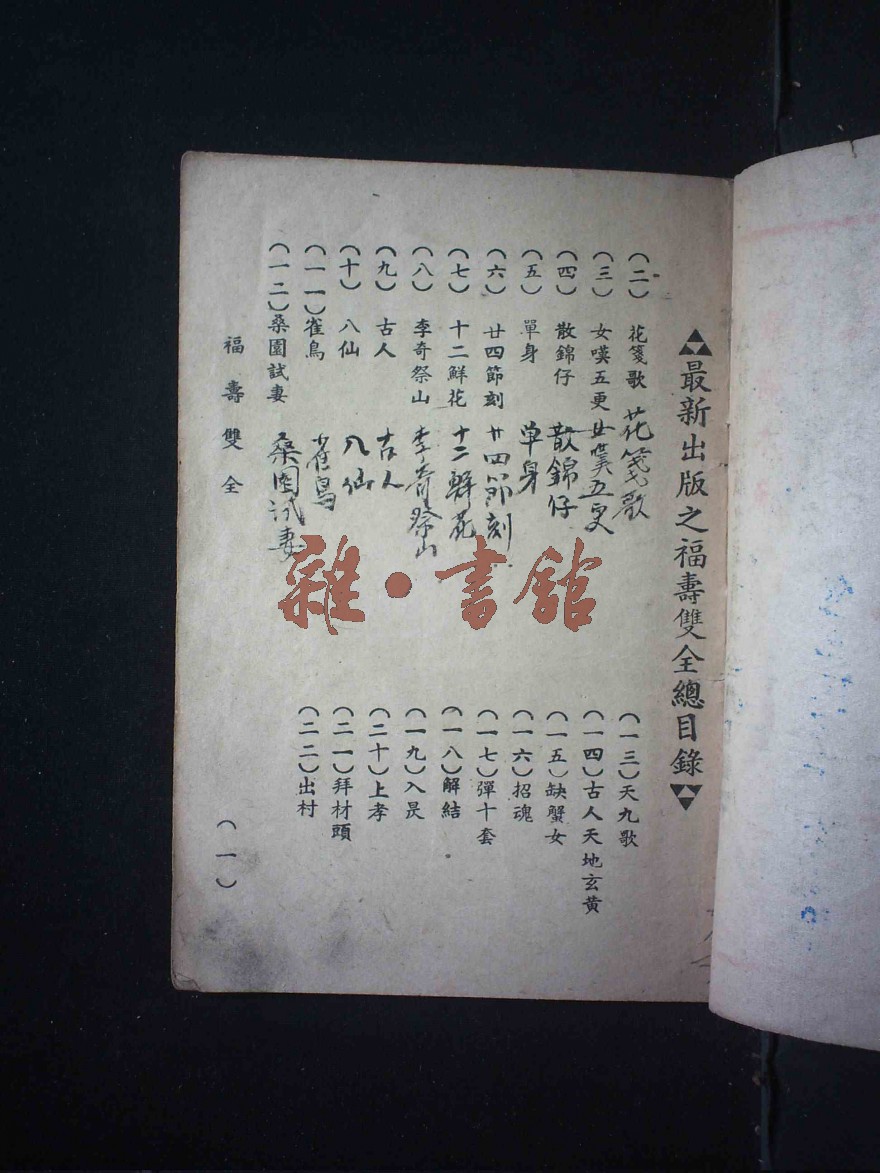 最新出版之福壽雙全總目錄
（二）花箋歌 花箋歌
（三）女嘆五更 女嘆五更
（四）散錦仔 散錦仔
（五）單身 单身
（六）廿四節刻 廿四節刻
（七）十二鮮花 十二鮮花
（八）李奇祭山 李奇祭山
（九）古人 古人
（十）八仙 八仙
（一一）雀鳥 雀鳥
（一二）桑園試妻 桑園試妻
（一三）天九歌
（一四）古人天地玄黄
（一五）缺蟹女
（一六）招魂
（一七）彈十套
（一八）解結
（一九）入昃
（二十）上孝
（二一）拜材頭
（二二）出村
福壽雙全
（一）
雜·書館